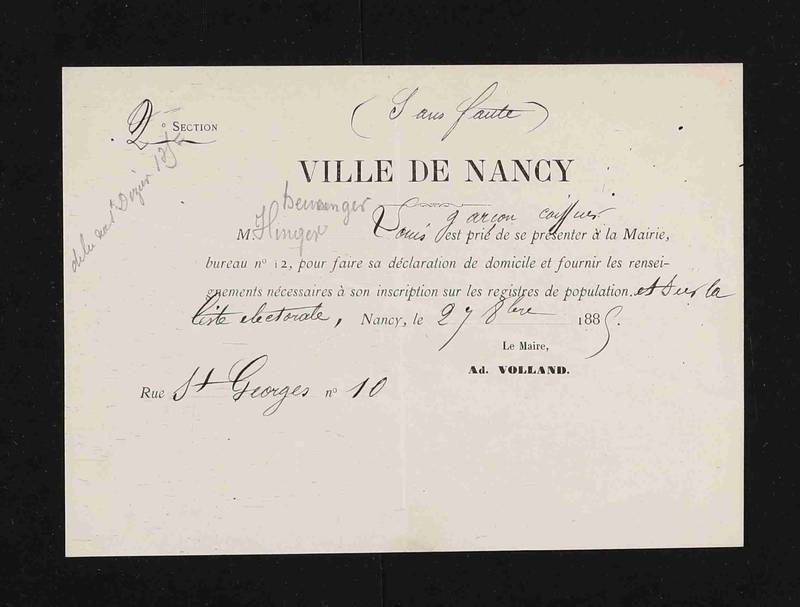 (Sans faute)
2e SECTION
VILLE DE NANCY
M. Hinger Louis garçon coiffeur est prié de se présenter à la Mairie,
bureau nº 12, pour faire sa déclaration de domicile et fournir les rensei-
gnements nécessaires à son inscription sur les registres de population. et sur la
liste electorale, Nancy, le 27 8bre 1885.
Le Maire,
Ad. VOLLAND.
Rue St Georges nº 10